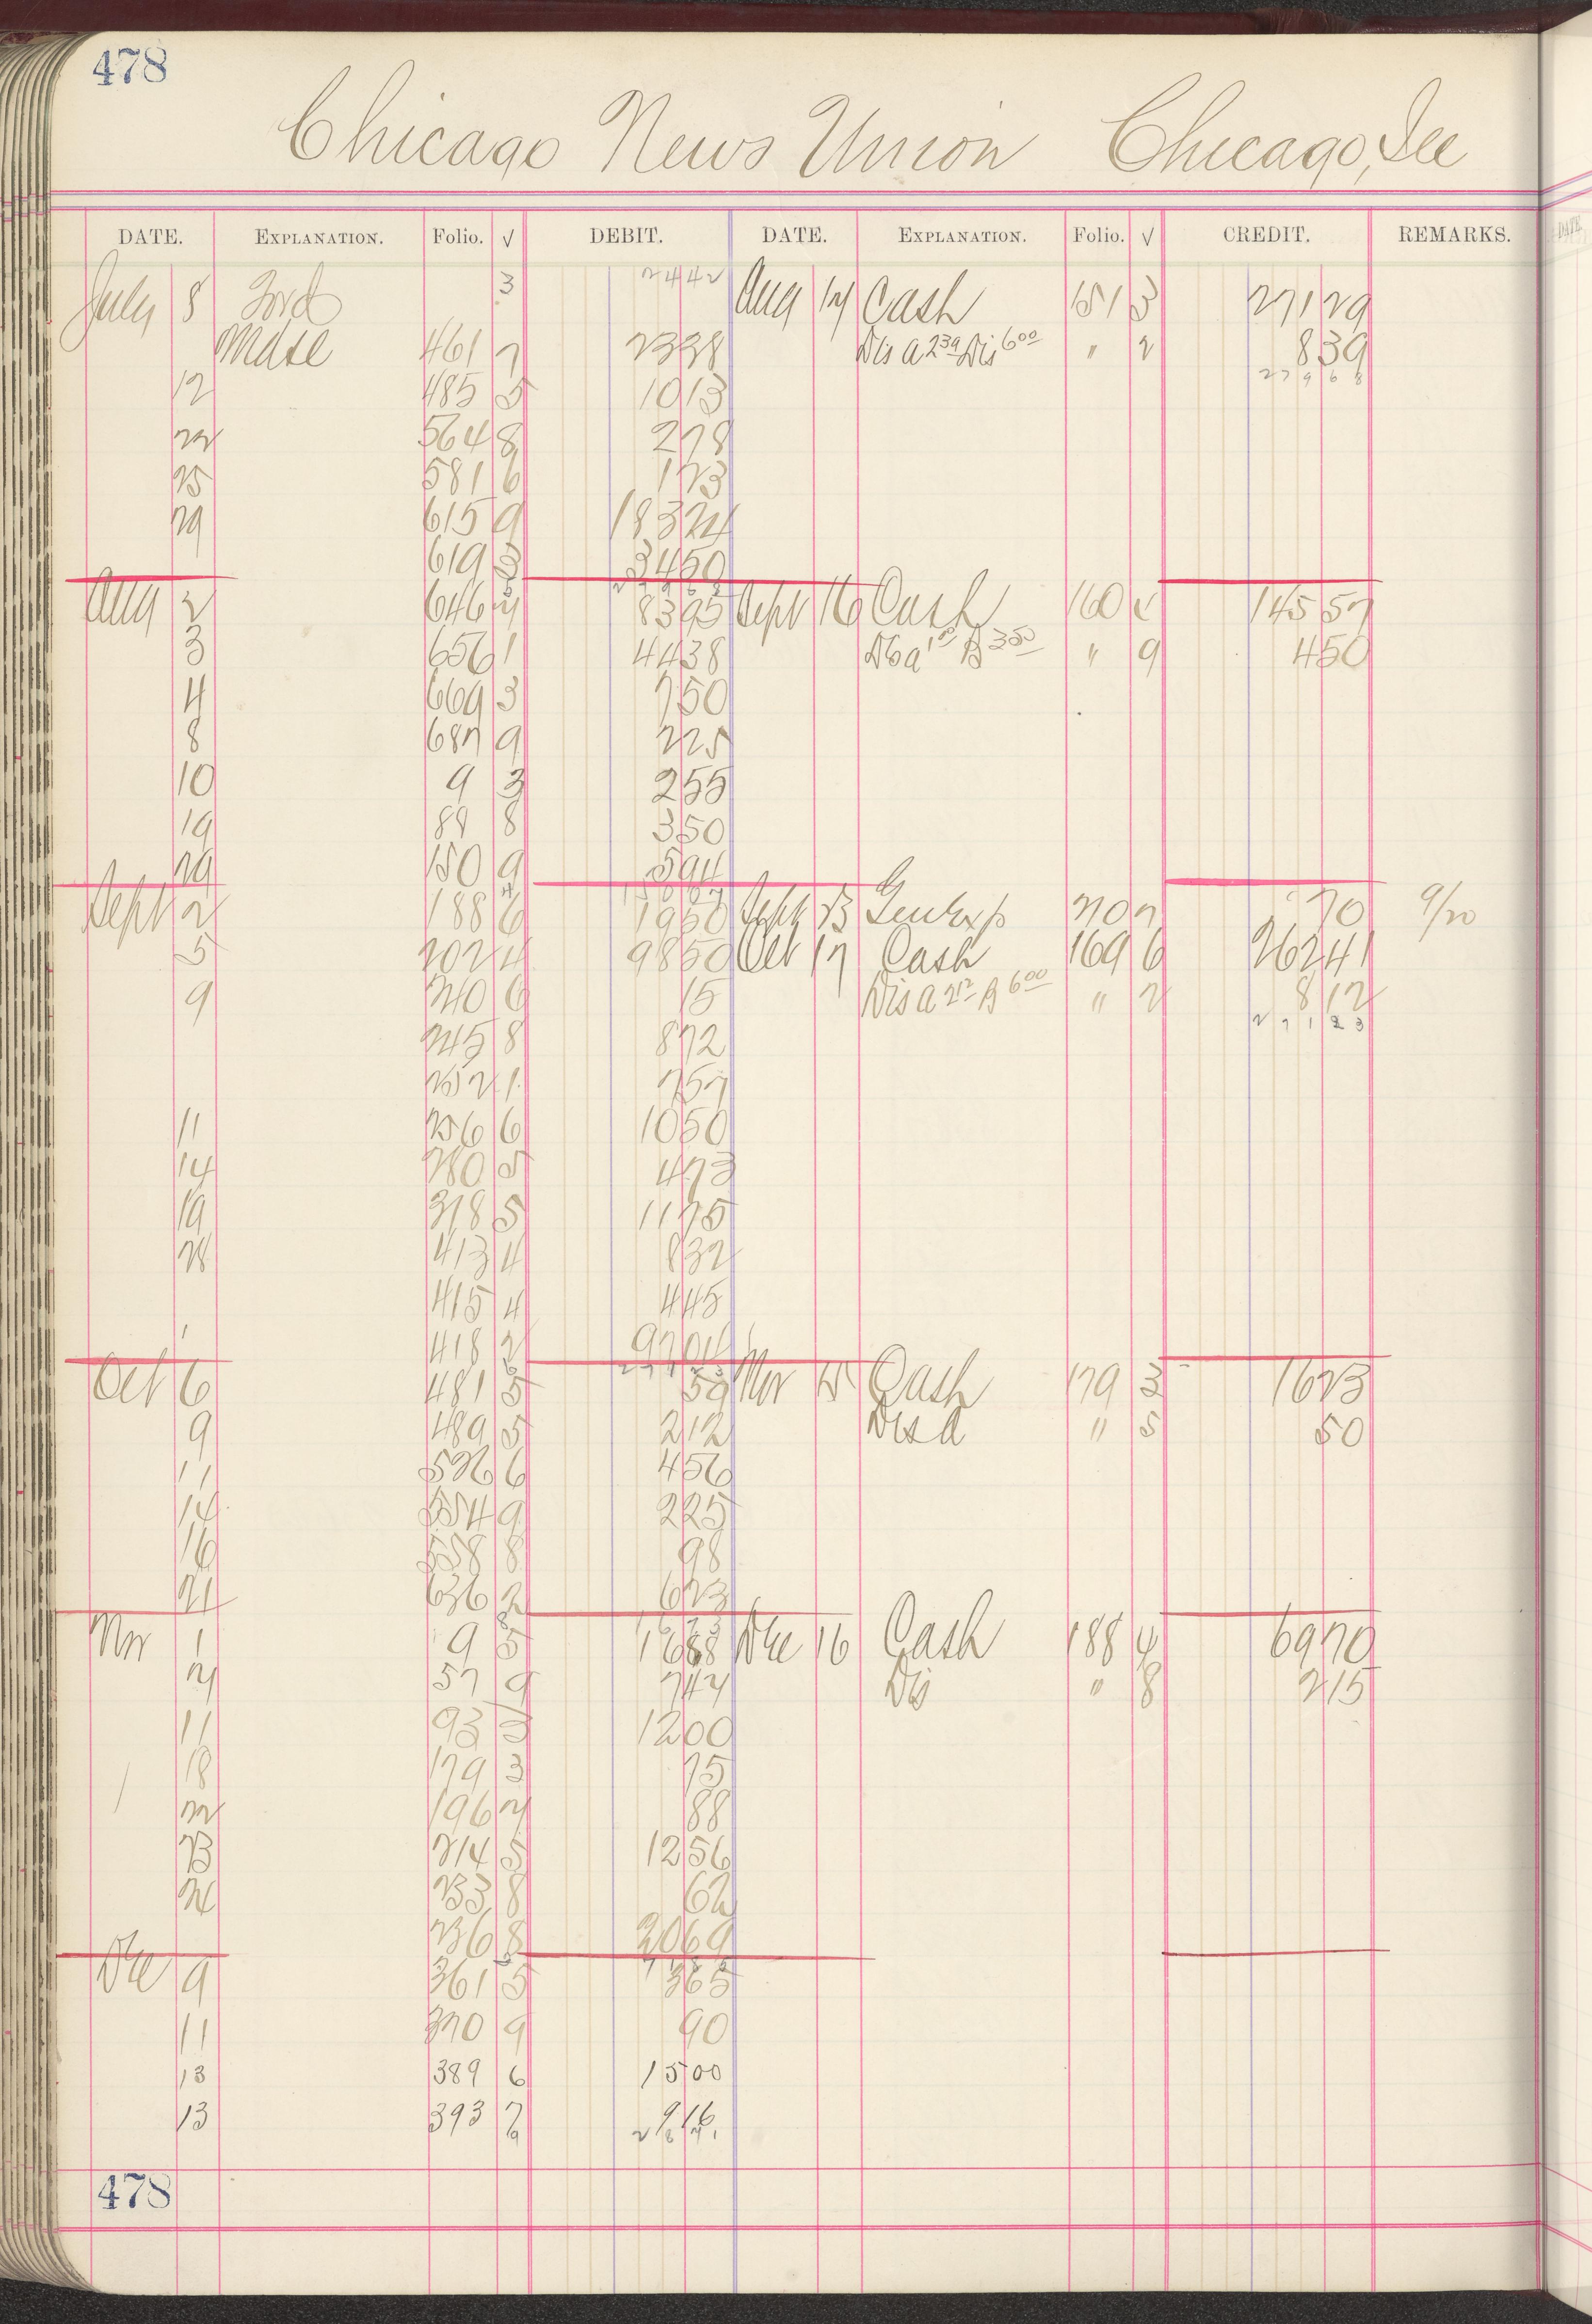 478
Chicago News Union Chicago, Ill
DATE. EXPLANATION. Folio. √ DEBIT. DATE. EXPLANATION. Folio. √ CREDIT. REMARKS.
July 8 Ford 3 24 42 Aug 14 Cash 151 3 271 29
Mdse 461 7 23 38 Dis A 239 Dis 600 " 2 8 39
12 485 5 10 13 279 68
22 564 8 2 78
25 581 6 1 73
29 615 9 183 24
619 3 34 50
Aug 2 646 4 83 95 Sept 16 Cash 160 145 57
3 656 1 44 38 " 9 4 50
4 669 3 7 50
8 687 9 2 25
10 9 3 2 55
19 89 8 3 50
29 150 9 5 94
Sept 2 188 6 19 50 Sept 23 Gen Exp 210 7 70 9/20
5 202 4 98 50 Oct 17 Cash 169 6 262 41
9 240 6 15 Dis A 212 B 600 " 2 8 12
245 8 8 72 271 23
252 1 7 57
11 256 6 10 50
14 280 5 4 73
19 318 5 11 75
28 413 4 8 32
415 4 4 45
418 2 97 04
Oct 6 481 5 59 Nov 15 Cash 179 3 16 23
9 489 5 2 12 Dis A " 5 50
11 526 6 4 56
14 554 9 2 25
16 558 8 98
21 636 2 6 23
Nov 1 9 5 16 88 Dec 16 Cash 188 4 69 70
4 57 9 7 44 Dis " 8 2 15
11 93 3 12 00
18 179 3 75
22 196 4 88
23 214 5 12 56
26 233 8 62
236 8 20 69
Dec 9 361 5 3 65
11 370 9 90
13 389 6 15 00
13 393 7 9 16
478